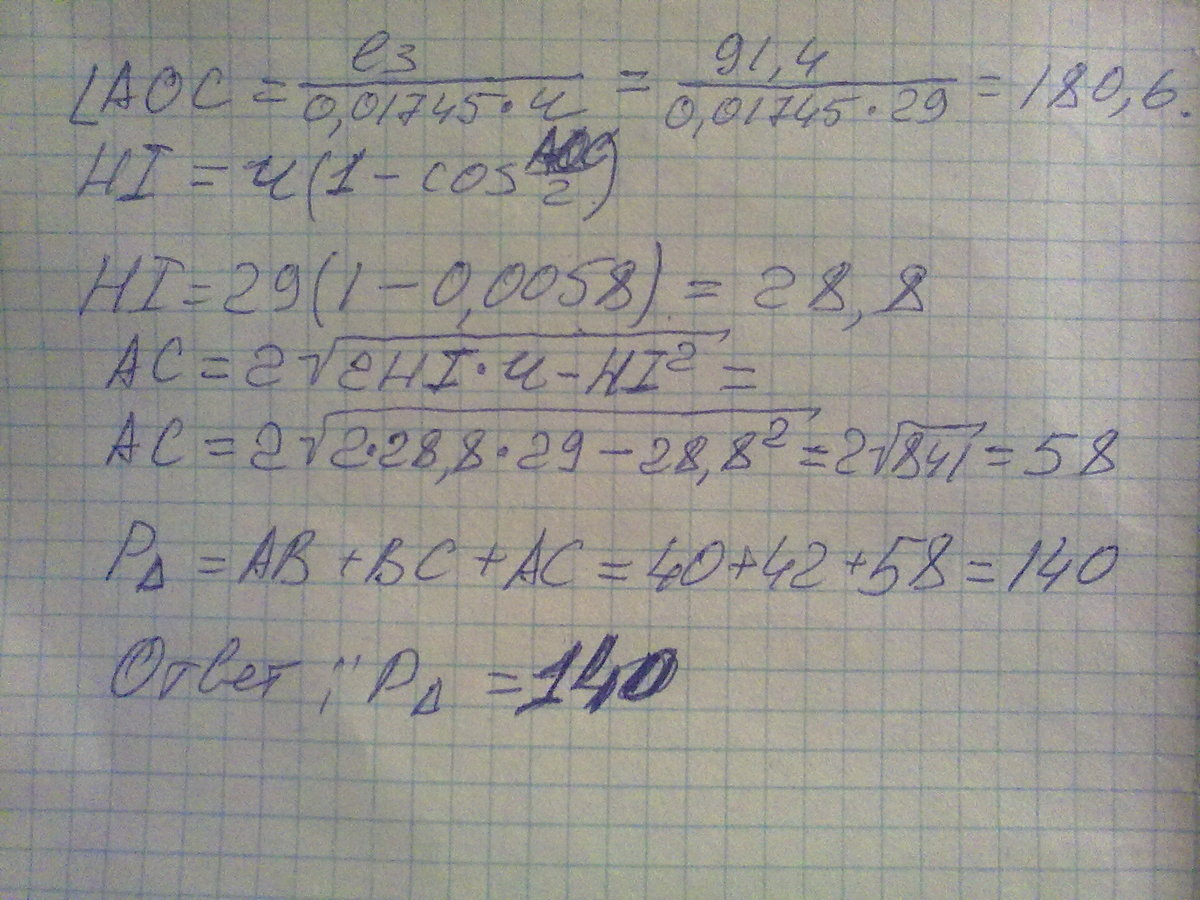 ∠AOC = ℓ3 / 0,01745·ч = 91,4 / 0,01745·29 = 180,6.
HI = ч(1 - cos AOC/2)
HI = 29(1 - 0,0058) = 28,8
AC = 2√(2HI·ч - HI²) =
AC = 2√(2·28,8·29 - 28,8²) = 2√841 = 58
P△ = AB + BC + AC = 40+42+58 = 140
Ответ ;" P△ = 140